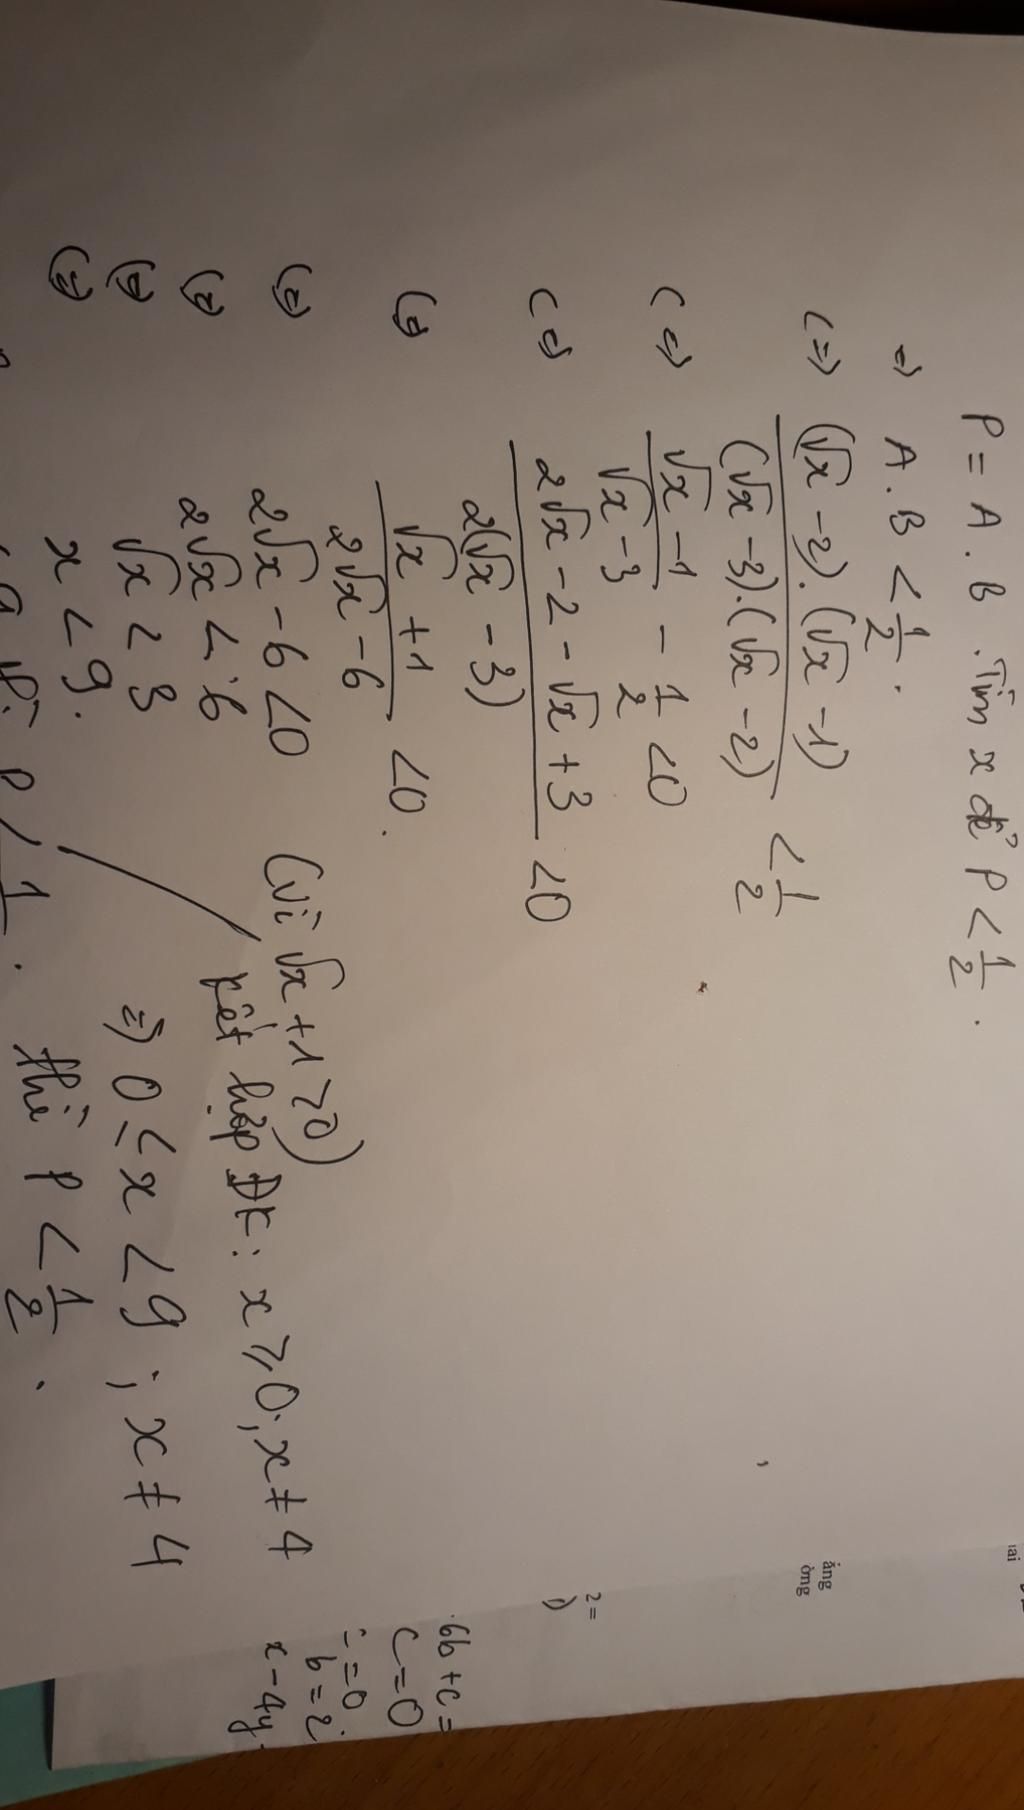 P = A . B . Tìm x để P < 1/2 .
=> A . B < 1/2 .
<=> (√x - 2).(√x - 1) / (√x - 3).(√x - 2) < 1/2
<=> √x - 1 / √x - 3 - 1/2 < 0
<=> 2√x - 2 - √x + 3 / 2(√x - 3) < 0
<=> √x + 1 / 2√x - 6 < 0 .
<=> 2√x - 6 < 0 (vì √x + 1 > 0)
<=> 2√x < 6
<=> √x < 3
<=> x < 9 .
kết hợp ĐK : x ≥ 0 ; x ≠ 4
=> 0 ≤ x < 9 ; x ≠ 4
thì P < 1/2 .
ăng
ờng
2 =
1)
6b + c =
c = 0
= 0
b = 2
x - 4y